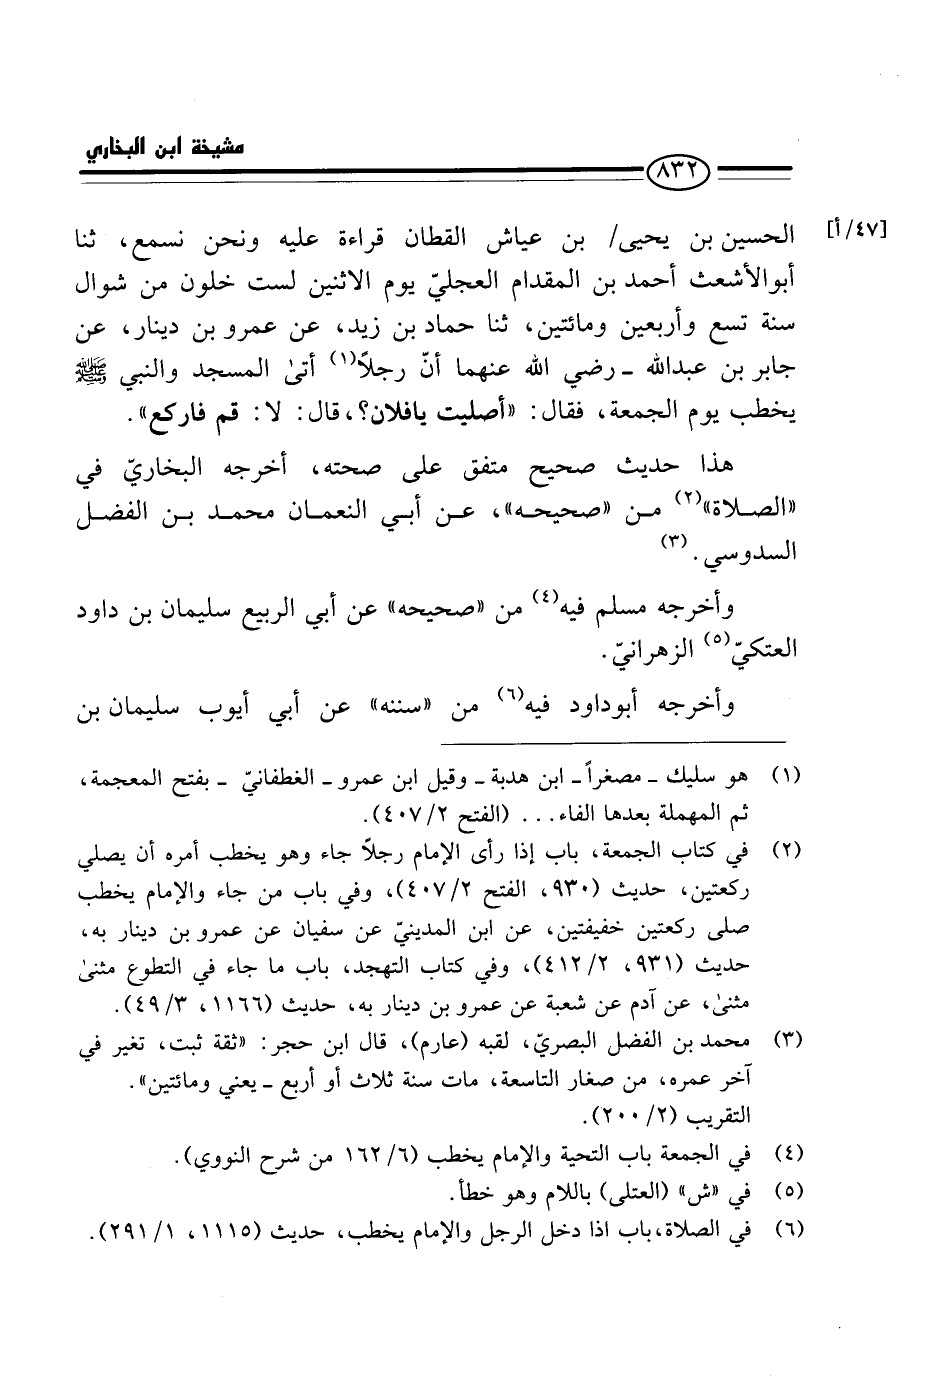 مشيخة ابن البخاري
٨٣٢
[٤٧/أ]
الحسين بن يحيى/ بن عياش القطان قراءة عليه ونحن نسمع، ثنا
أبوالأشعث أحمد بن المقدام العجليّ يوم الاثنين لست خلون من شوال
سنة تسع وأربعين ومائتين، ثنا حماد بن زيد، عن عمرو بن دينار، عن
جابر بن عبدالله ـ رضي الله عنهما أنّ رجلاً(١) أتىٰ المسجد والنبي ﷺ
يخطب يوم الجمعة، فقال: «أصليت يافلان؟، قال: لا: قم فاركع».
هذا حديث صحيح متفق على صحته، أخرجه البخاريّ في
«الصلاة»(٢) من «صحيحه»، عن أبي النعمان محمد بن الفضل
السدوسي.(٣)
وأخرجه مسلم فيه(٤) من «صحيحه» عن أبي الربيع سليمان بن داود
العتكيّ(٥) الزهرانيّ.
وأخرجه أبوداود فيه(٦) من «سننه» عن أبي أيوب سليمان بن
(١) هو سليك ـ مصغراً ـ ابن هدبة ـ وقيل ابن عمرو ـ الغطفانيّ ـ بفتح المعجمة،
ثم المهملة بعدها الفاء... (الفتح ٤٠٧/٢).
(٢) في كتاب الجمعة، باب إذا رأى الإمام رجلاً جاء وهو يخطب أمره أن يصلي
ركعتين، حديث (٩٣٠، الفتح ٤٠٧/٢)، وفي باب من جاء والإمام يخطب
صلى ركعتين خفيفتين، عن ابن المدينيّ عن سفيان عن عمرو بن دينار به،
حديث (٩٣١، ٤١٢/٢)، وفي كتاب التهجد، باب ما جاء في التطوع مثنىٰ
مثنىٰ، عن آدم عن شعبة عن عمرو بن دينار به، حديث (١١٦٦، ٤٩/٣).
(٣) محمد بن الفضل البصريّ، لقبه (عارم)، قال ابن حجر: «ثقة ثبت، تغير في
آخر عمره، من صغار التاسعة، مات سنة ثلاث أو أربع ـ يعني ومائتين».
التقريب (٢٠٠/٢).
(٤) في الجمعة باب التحية والإمام يخطب (١٦٢/٦ من شرح النووي).
(٥) في «ش» (العتلى) باللام وهو خطأ.
(٦) في الصلاة،باب اذا دخل الرجل والإمام يخطب، حديث (١١١٥، ٢٩١/١).